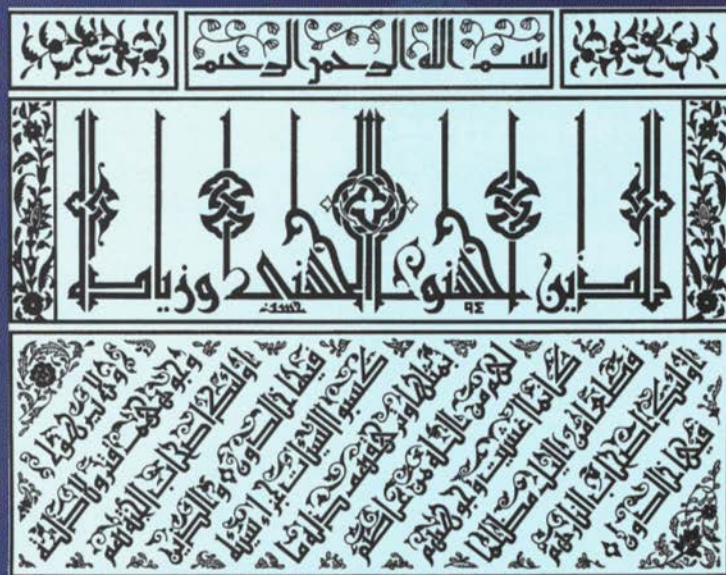 بسم الله الرحمن الرحيم
للذين أحسنوا الحسنى وزيادة
٩٤
ولا يرهق
وجوههم قتر ولا ذلة
أولئك أصحاب الجنة هم
فيها خالدون والذين
كسبوا السيئات جزاء سيئة
بمثلها وترهقهم ذلة ما
لهم من الله من عاصم
كأنما أغشيت وجوههم
قطعا من الليل مظلما
أولئك أصحاب النار هم
فيها خالدون